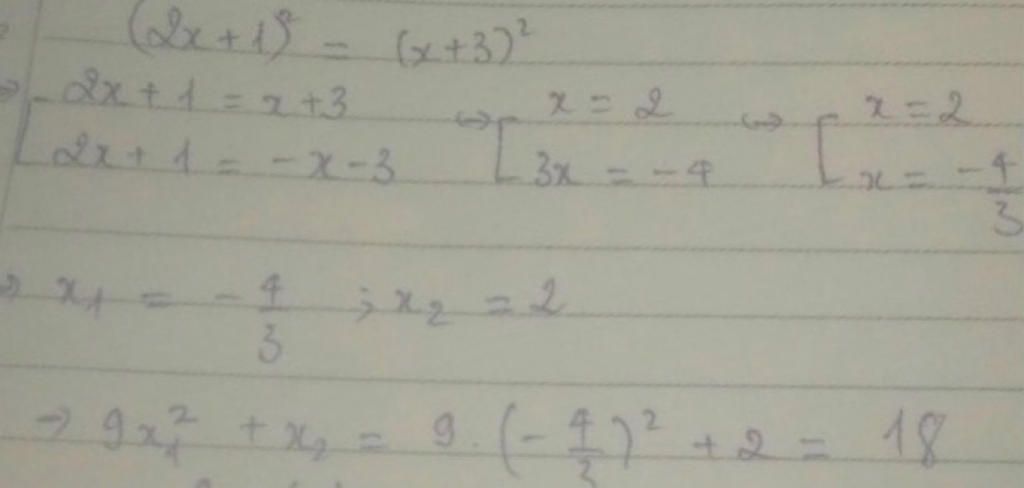 (2x+1)² = (x+3)²
⇒ [ 2x + 1 = x + 3 ↔ [ x = 2 ↔ [ x = 2
2x + 1 = -x - 3 3x = -4 x = -4/3
⇒ x₁ = -4/3 ; x₂ = 2
→ 9x₁² + x₂ = 9 . (-4/3)² + 2 = 18